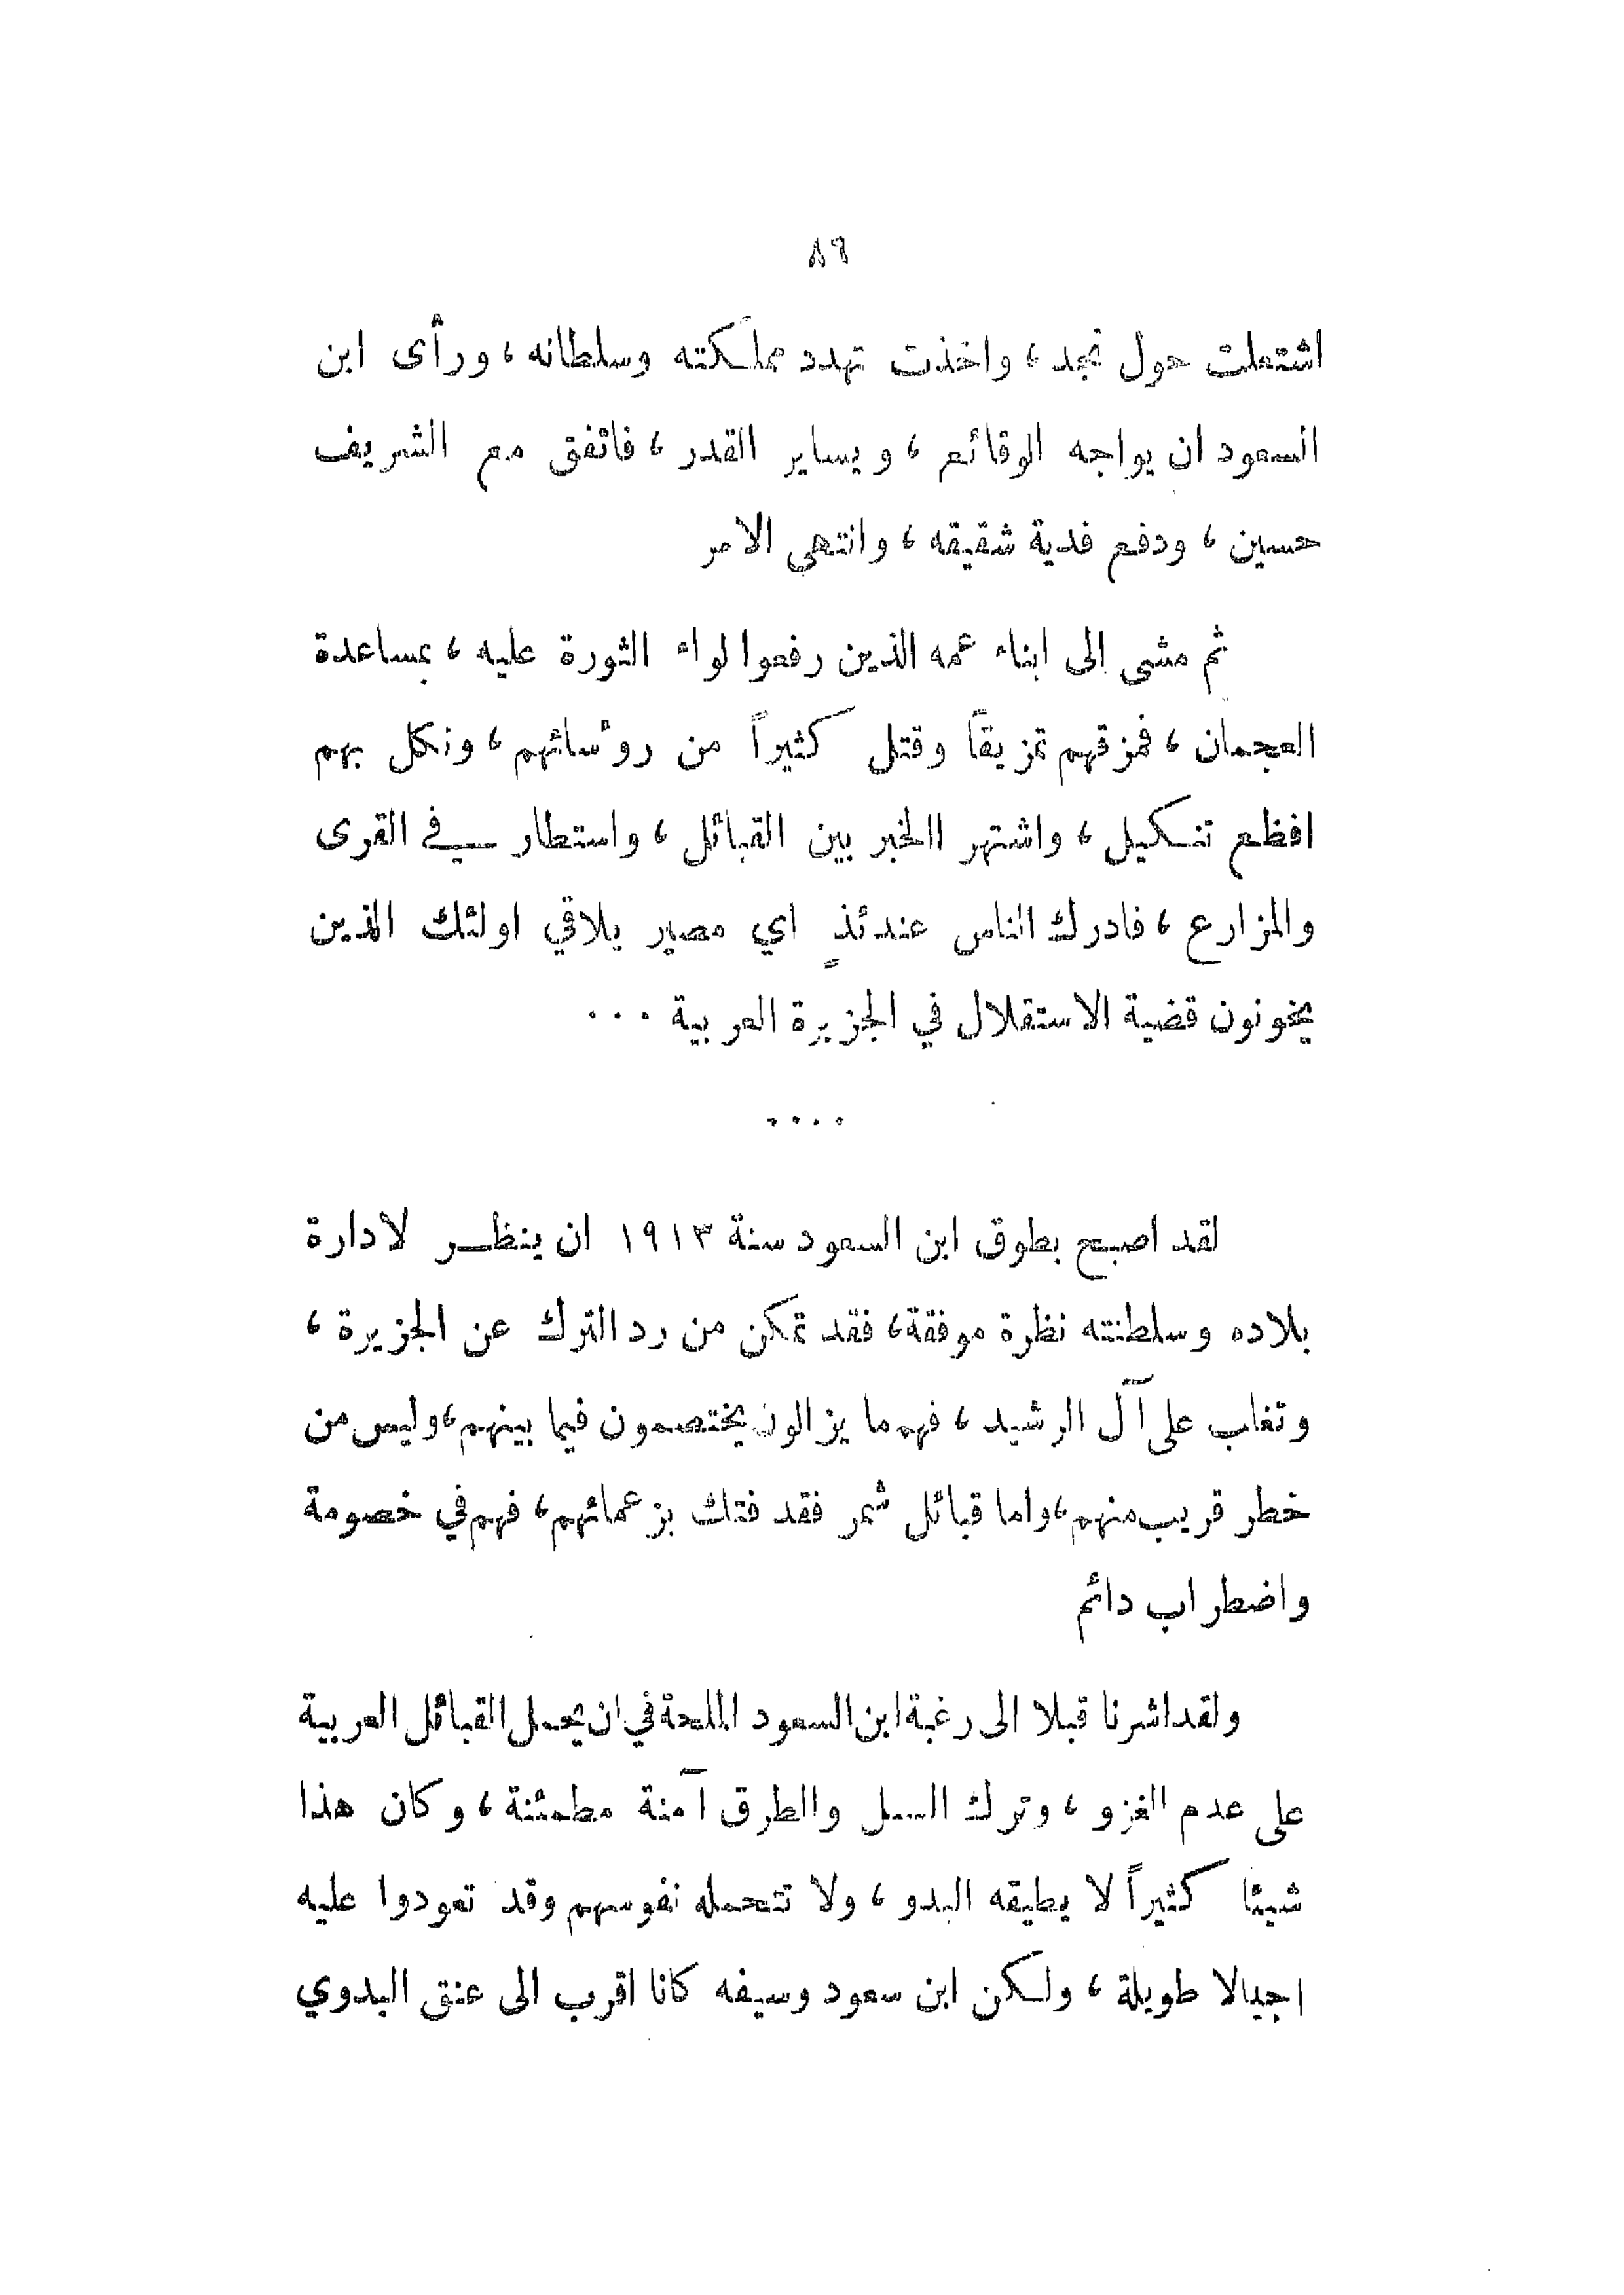 ٨٩
اشتعلت حول نجد ، واخذت تهدد مملكته وسلطانه ، ورأى ابن
السعود ان يواجه الوقائع ، ويساير القدر ، فاتفق مع الشريف
حسين ، ودفع فدية شقيقه ، وانتهى الامر
ثم مشى إلى ابناء عمه الذين رفعوا لواء الثورة عليه ، بمساعدة
العجمان ، فمزقهم تمزيقاً وقتل كثيراً من روؑسائهم ، ونكل بهم
افظع تنكيل ، واشتهر االخبر بين القبائل ، واستطار في القرى
والمزارع ، فادرك الناس عندئذٍ اي مصير يلاقي اولئك الذين
يخونون قضية الاستقلال في الجزيرة العربية . . .
. . . .
لقد اصبح بطوق ابن السعود سنة ١٩١٣ ان ينظر لادارة
بلاده وسلطنته نظرة موفقة ، فقد تمكن من رد الترك عن الجزيرة ،
وتغلب على آل الرشيد ، فهم ما يزالون يختصمون فيما بينهم ، وليس من
خطر قريب منهم ، واما قبائل شمر فقد فتك بزعمائهم ، فهم في خصومة
واضطراب دائم
ولقد اشرنا قبلا الى رغبة ابن السعود الملحة في ان يحمل القبائل العربية
على عدم الغزو ، وترك السبل والطرق آمنة مطمئنة ، وكان هذا
شيئا كثيراً لا يطيقه البدو ، ولا تتحمله نفوسهم وقد تعودوا عليه
اجيالا طويلة ، ولكن ابن سعود وسيفه كانا اقرب الى عنق البدوي